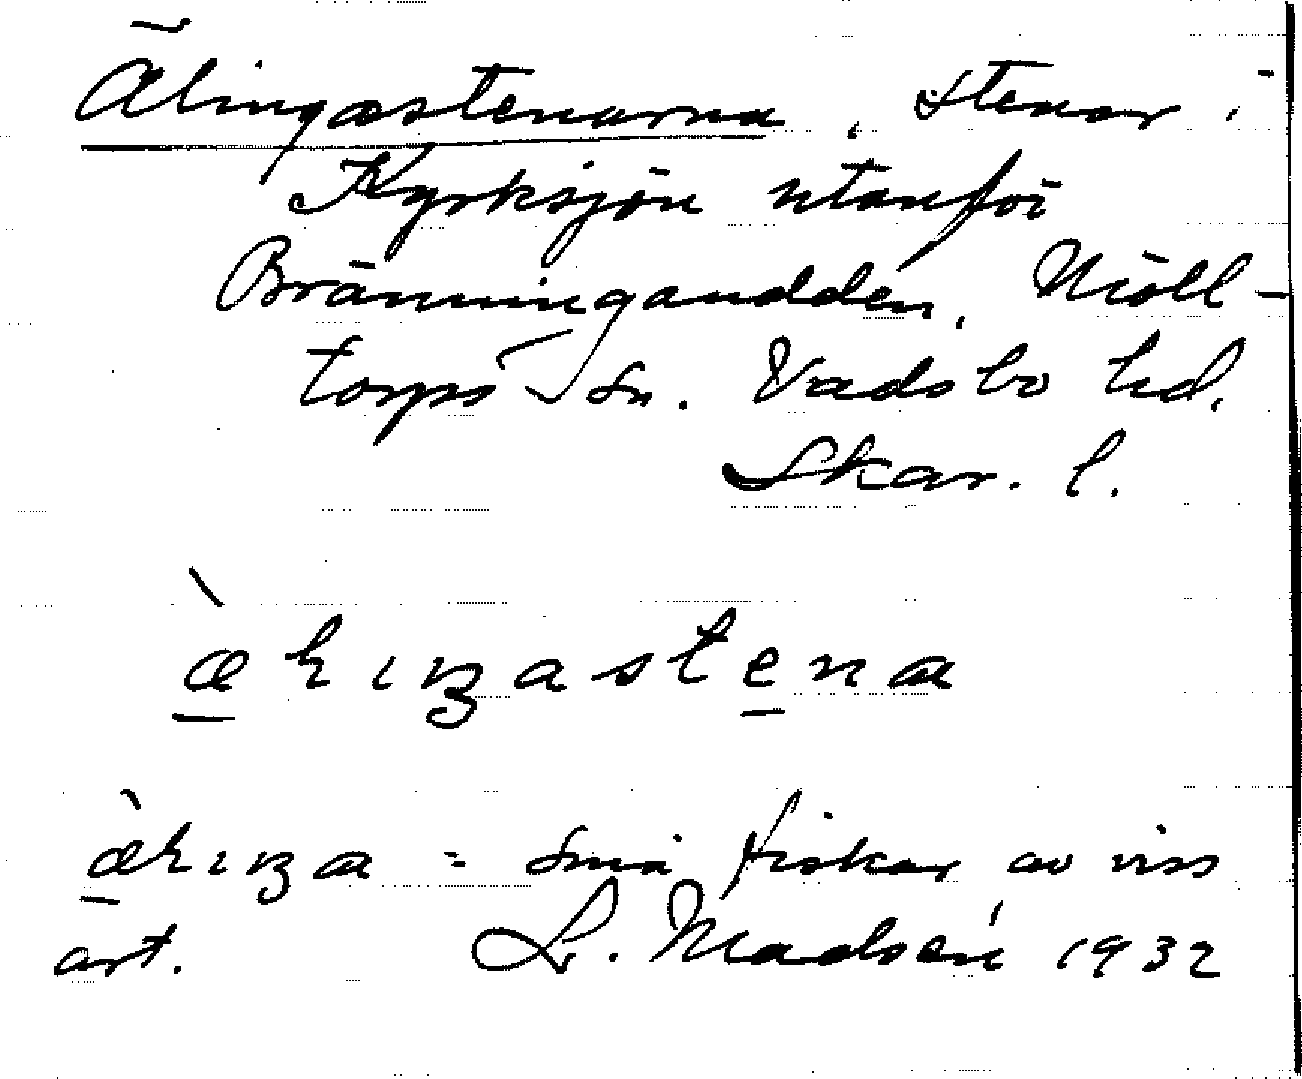 Älingastenarna, stenar i
Kyrksjön utanför
Bränningaudden, Möll-
torps sn. Vadsbo hd.
Skar. l.
æ̠̀lıŋaste̠na
æ̠̀lıŋa = små fiskar av viss
art. L. Madsén 1932